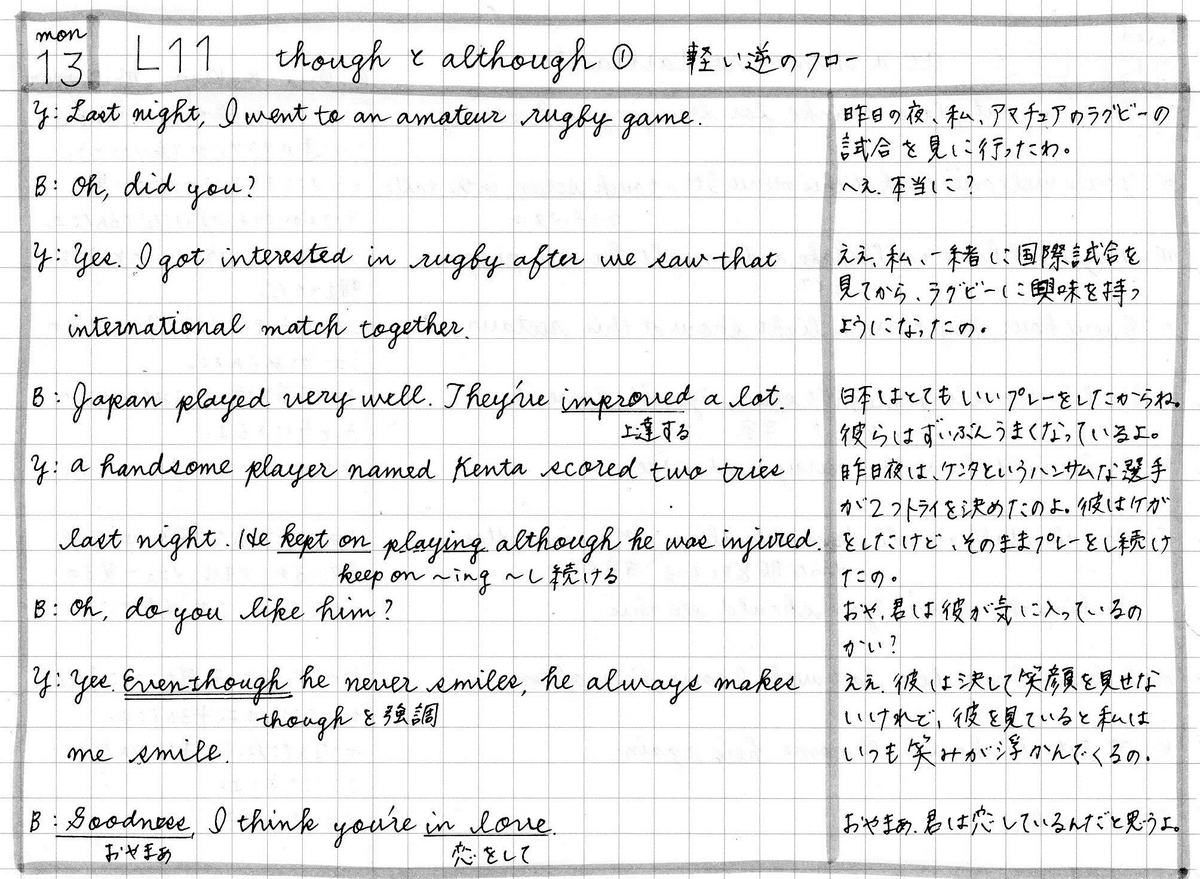 mon
13 L11 though と although ① 軽い逆のフロー
Y: Last night, I went to an amateur rugby game.
昨日の夜、私、アマチュアのラグビーの
試合を見に行ったわ。
B: Oh, did you?
へえ、本当に?
Y: Yes. I got interested in rugby after we saw that
international match together.
ええ、私、一緒に国際試合を
見てから、ラグビーに興味を持つ
ようになったの。
B: Japan played very well. They've improved a lot.
上達する
日本はとてもいいプレーをしたからね。
彼らはずいぶんうまくなっているよ。
Y: a handsome player named Kenta scored two tries
last night. He kept on playing although he was injured.
keep on ~ing ~し続ける
昨日夜は、ケンタというハンサムな選手
が2つトライを決めたのよ。彼はケガ
をしたけど、そのままプレーをし続け
たの。
B: Oh, do you like him?
おや、君は彼が気に入っているの
かい?
Y: Yes. Even though he never smiles, he always makes
thoughを強調
me smile.
ええ、彼は決して笑顔を見せな
いけれど、彼を見ていると私は
いつも笑みが浮かんでくるの。
B: Goodness, I think you're in love.
おやまあ 恋をして
おやまあ、君は恋しているんだと思うよ。